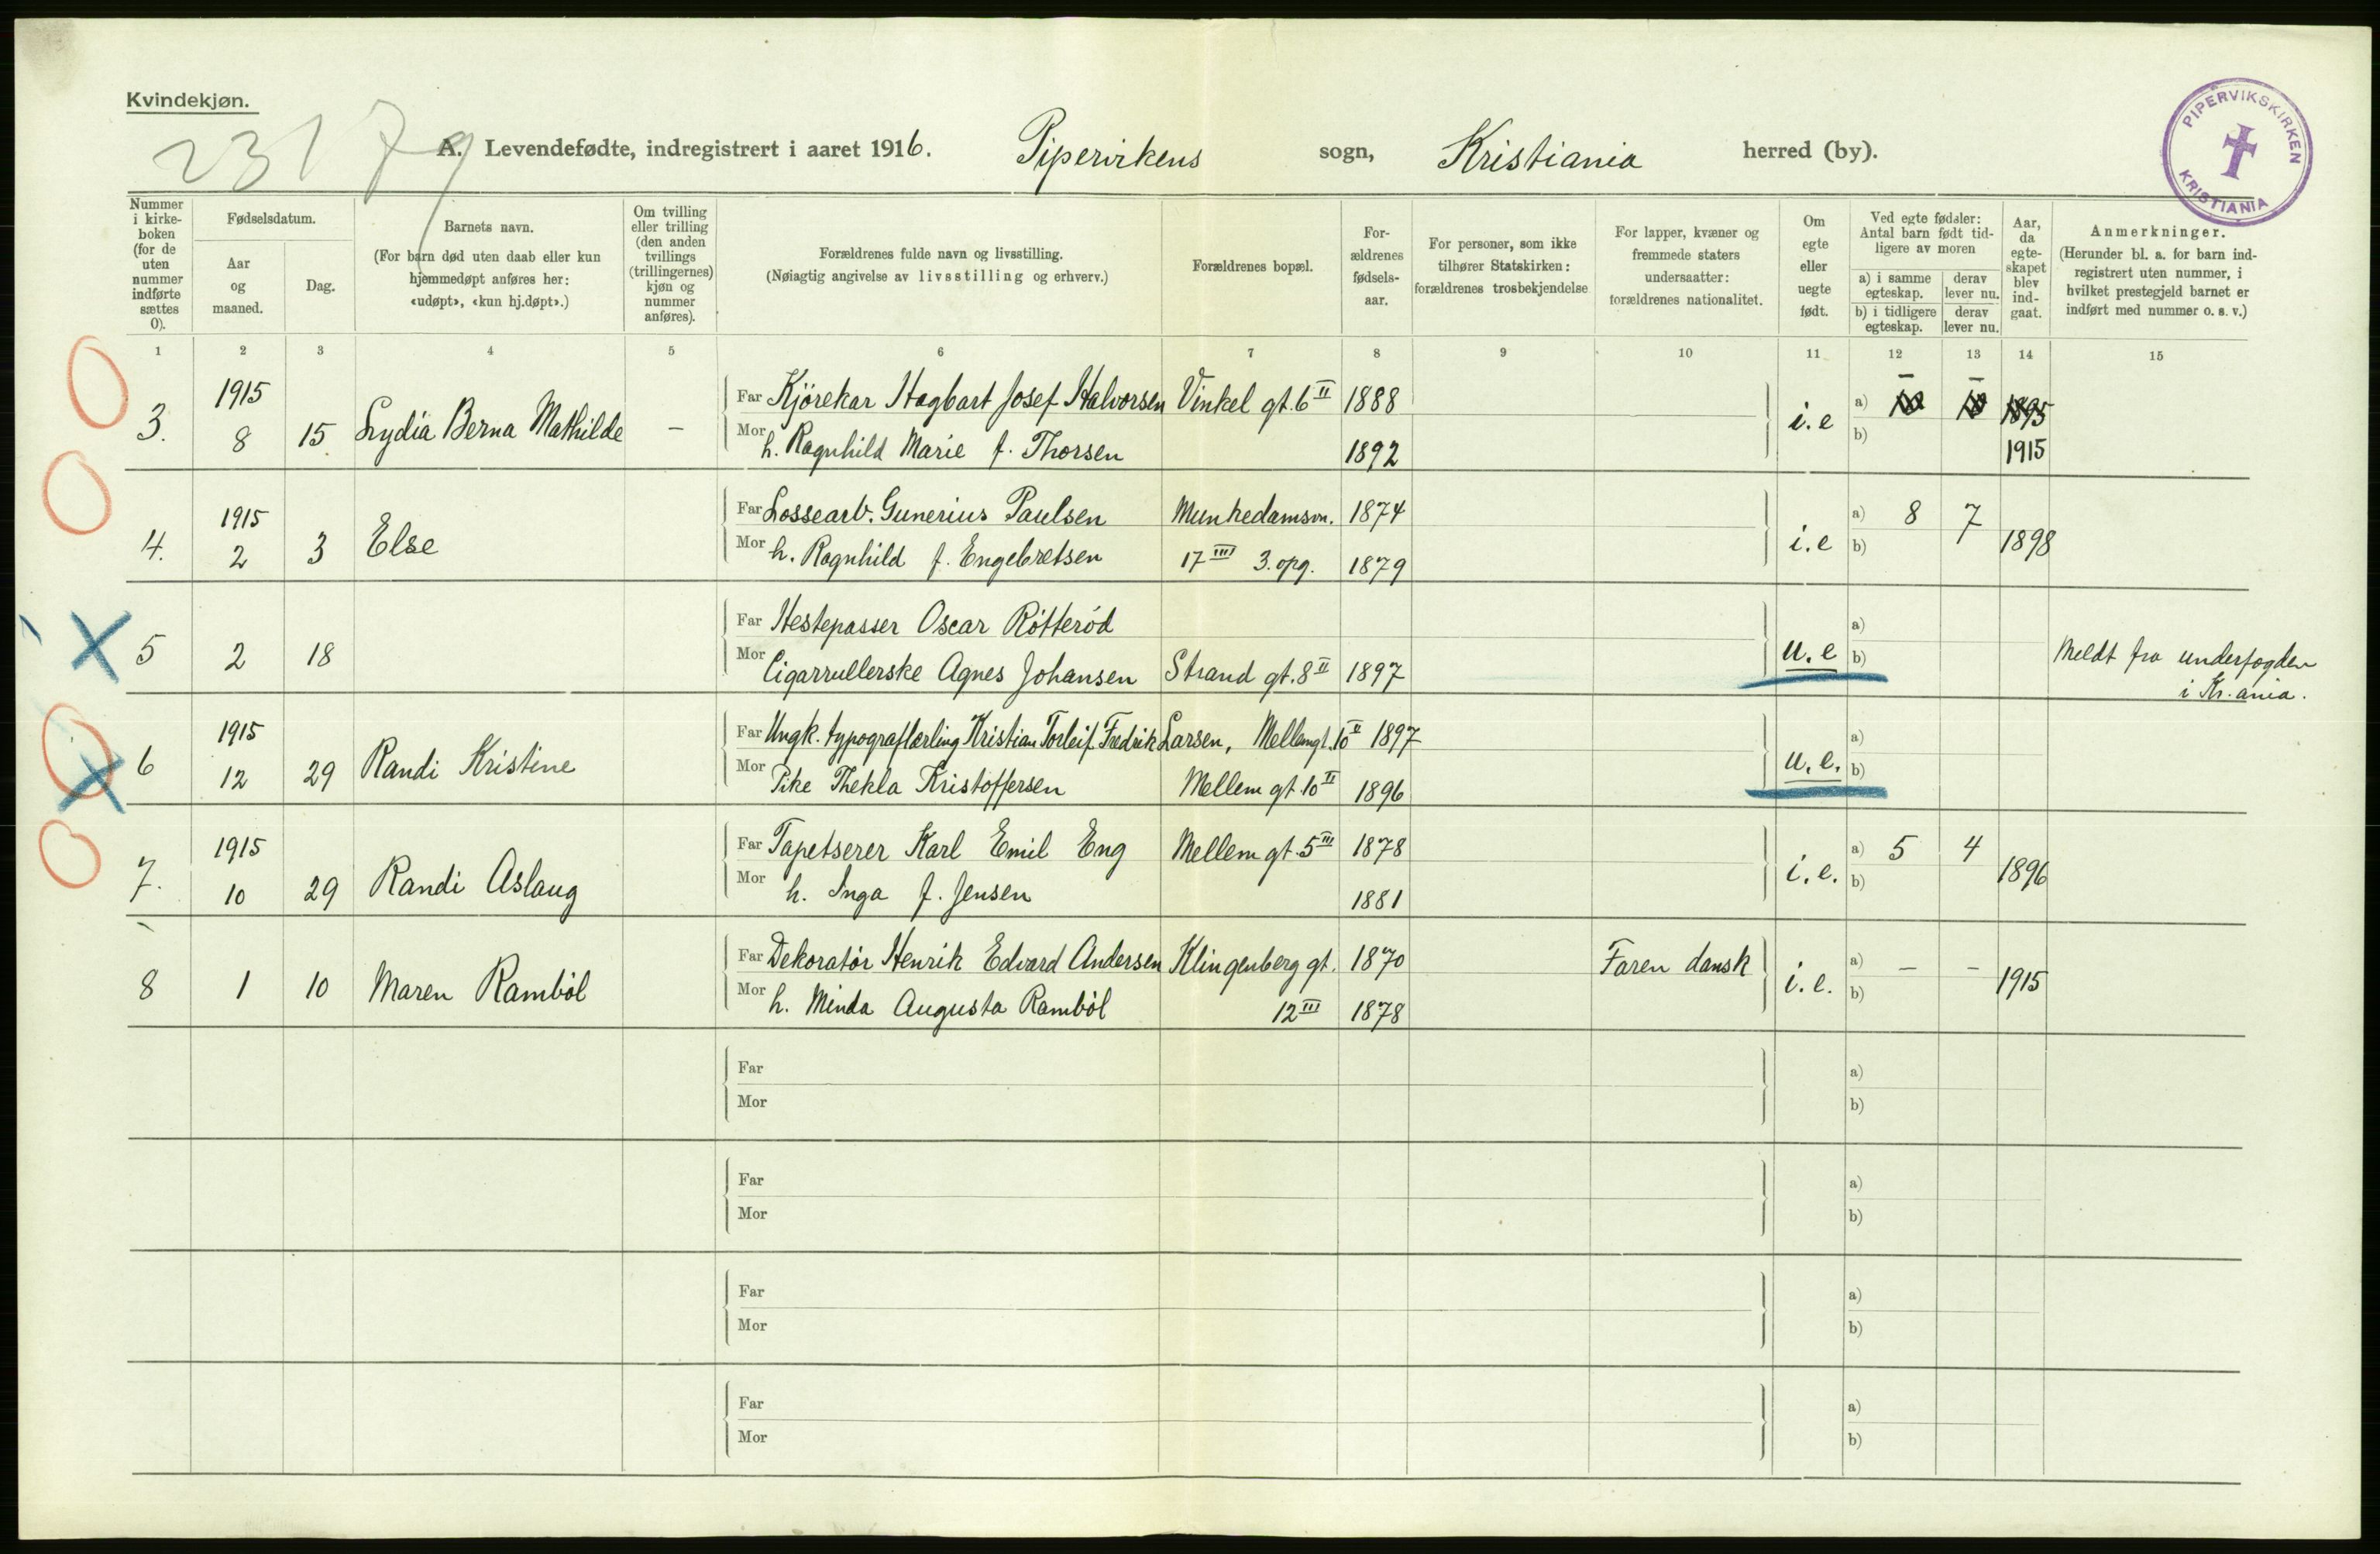 Kvindekjøn.
23179
A. Levendefødte, indregistrert i aaret 1916. Piperviken​s sogn, Kristiania herred (by).
PIPERVIKSKIRKEN KRISTIANIA
Nummer i kirke-boken (for de uten nummer indførte sættes 0).
Fødselsdatum.
Aar og maaned.
Dag.
Barnets navn.
(For barn død uten daab eller kun hjemmedøpt anføres her: «udøpt», «kun hj.døpt».)
Om tvilling eller trilling (den anden tvillings (trillingernes) kjøn og nummer anføres).
Forældrenes fulde navn og livsstilling.
(Nøiagtig angivelse av livsstilling og erhverv.)
Forældrenes bopæl.
For-ældrenes fødsels-aar.
For personer, som ikke tilhører Statskirken: forældrenes trosbekjendelse
For lapper, kvæner og fremmede staters undersaatter: forældrenes nationalitet.
Om egte eller uegte født.
Ved egte fødsler: Antal barn født tid-ligere av moren
a) i samme egteskap.
derav lever nu.
b) i tidligere egteskap.
derav lever nu.
Aar, da egte-skapet blev ind-gaat.
Anmerkninger.
(Herunder bl. a. for barn ind-registrert uten nummer, i hvilket prestegjeld barnet er indført med nummer o. s. v.)
1 2 3 4 5 6 7 8 9 10 11 12 13 14 15
1915 Far Kjörekar Hagbart Josef Halvorsen Vinkel gt. 6 II 1888 a) – – 1895
3. 8 15 Lydia Berna Mathilde – Mor h. Ragnhild Marie f. Thorsen 1892 i.e b) 1915
1915 Far Lossearb. Gunerius Paulsen Munkedamsvn. 1874 a) 8 7
4. 2 3 Else Mor h. Ragnhild f. Engebretsen 17 III 3. opg. 1879 i.e b) 1898
Far Hestepasser Oscar Rötteröd a)
5 2 18 Mor Cigarrullerske Agnes Johansen Strand gt. 8 II 1897 u.e b) Meldt fra underfogden
i Kr.ania.
1915 Far Ungk. typograflærling Kristian Torleif Fredrik Larsen, Mellemgt. 10 II 1897 a)
6 12 29 Randi Kristine Mor Pike Thekla Kristoffersen Mellem gt. 10 II 1896 u.e. b)
1915 Far Tapetserer Karl Emil Eng Mellem gt. 5 III 1878 a) 5 4
7. 10 29 Randi Aslaug Mor h. Inga f. Jensen 1881 i.e. b) 1896
Far Dekoratör Henrik Edvard Andersen Klingenberg gt. 1870 Faren dansk a) – –
8 1 10 Maren Ramböl Mor h. Minda Augusta Ramböl 12 III 1878 i.e. b) 1915
Far a)
Mor b)
Far a)
Mor b)
Far a)
Mor b)
Far a)
Mor b)